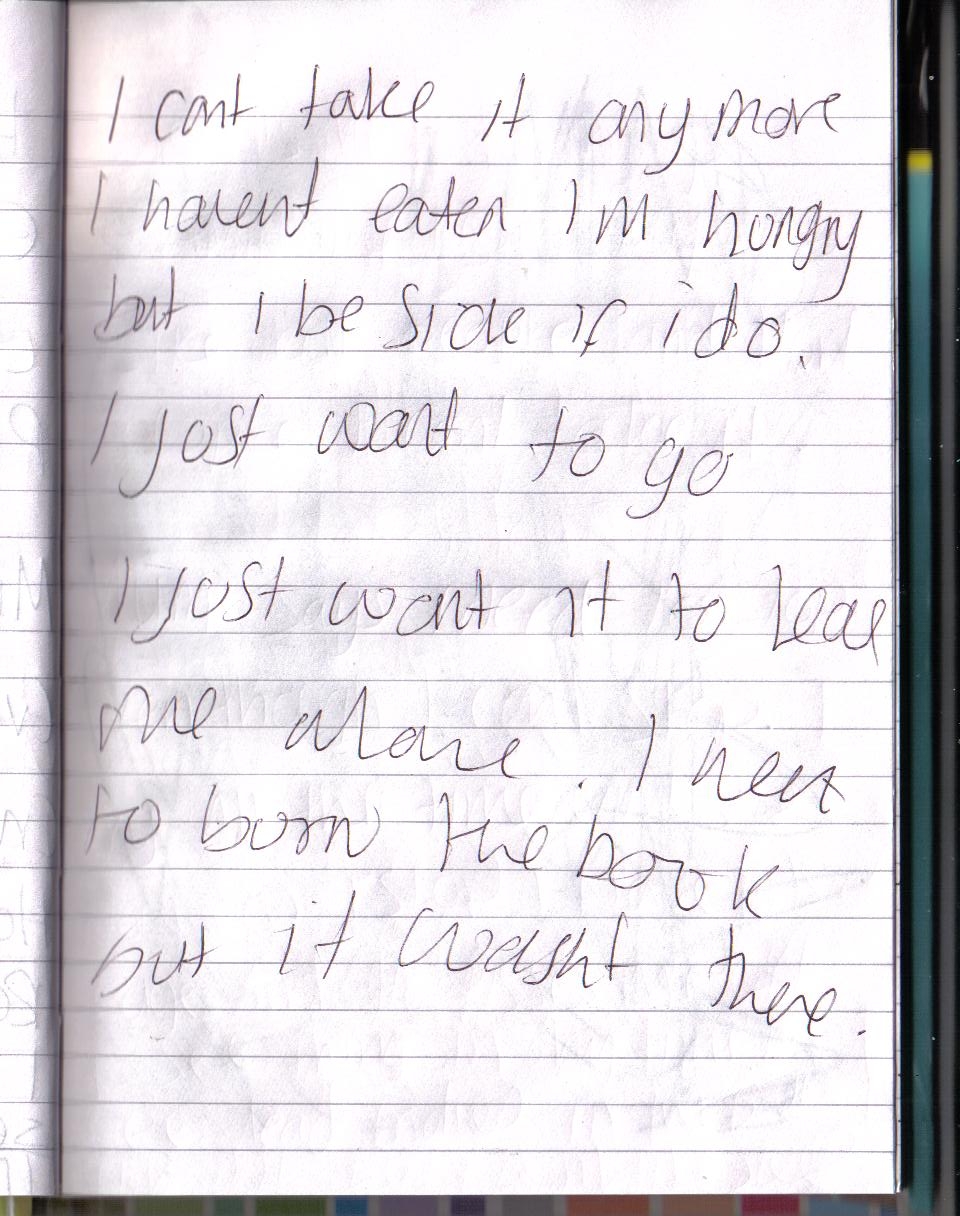 I cant take it any more
I havent eaten I'm hungry
but i be Sick if i do.
I just want to go
I just want it to leav
me alone. I went
to burn the book
but it wasnt there.